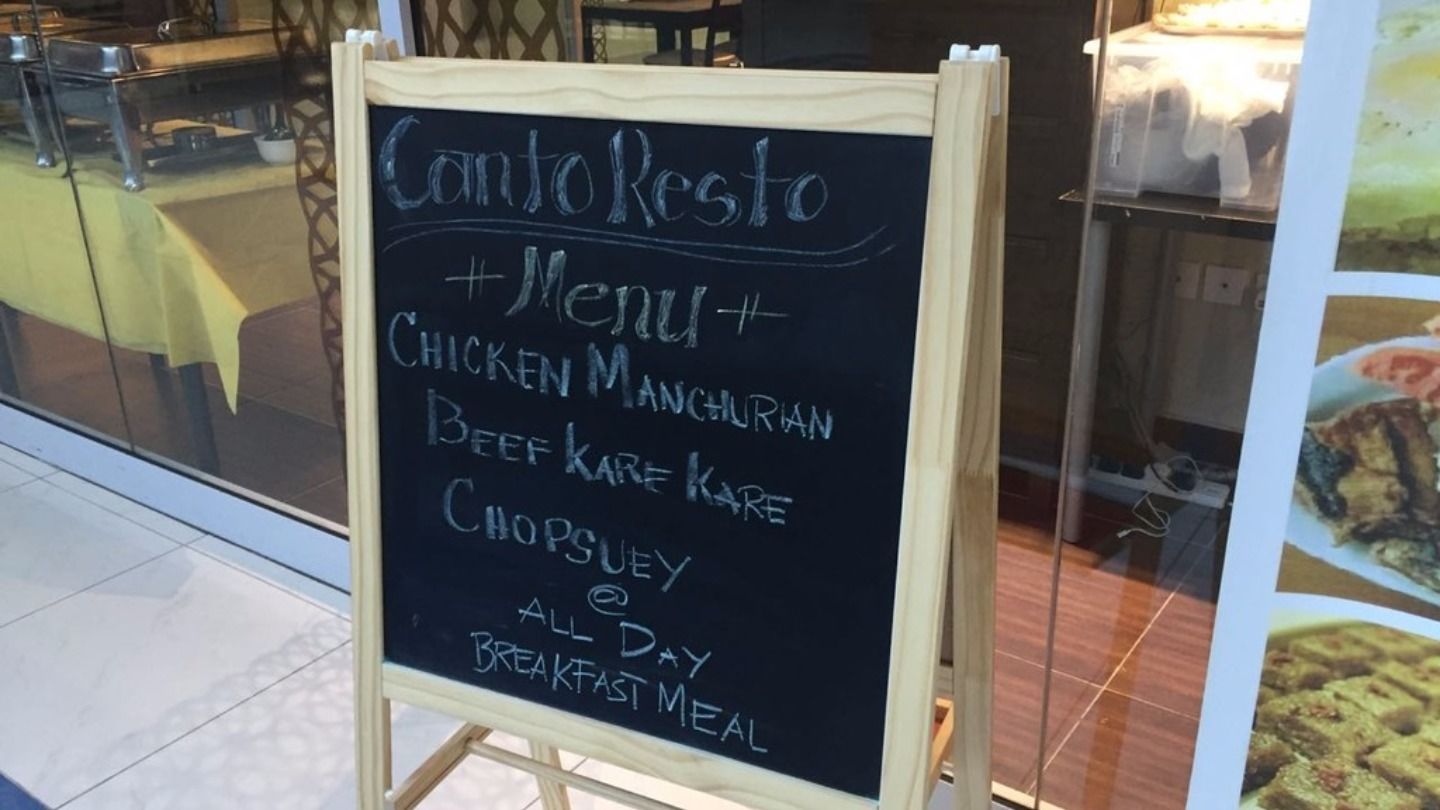 Canto Resto
Menu
CHICKEN MANCHURIAN
BEEF KARE KARE
CHOPSUEY
@
ALL DAY
BREAKFAST MEAL